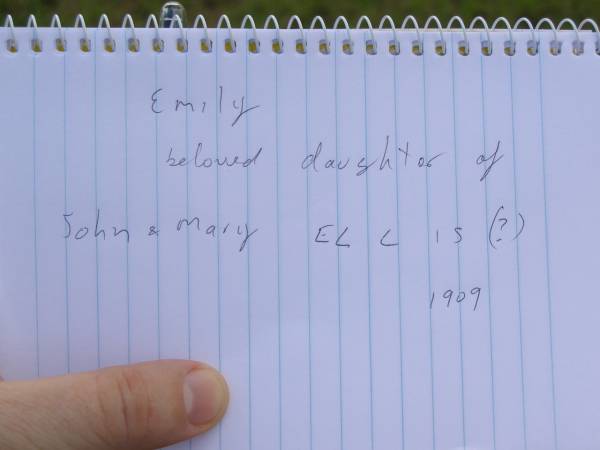 Emily
beloved daughter of
John & Mary ELLIS (?)
1909